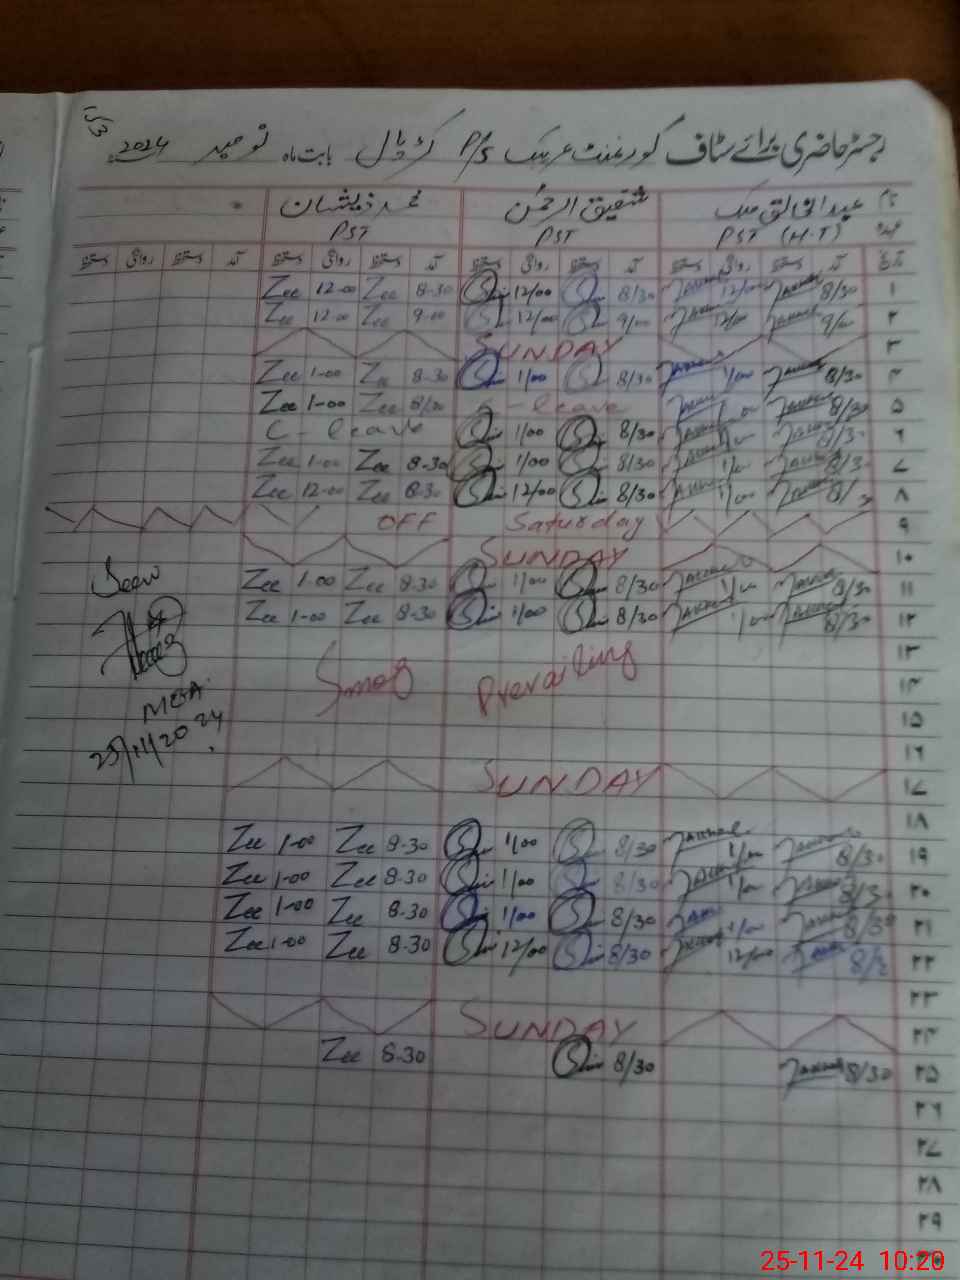 رجسٹر حاضری برائے سٹاف گورنمنٹ P/S کڑپال بابت ماہ نومبر 2024
نام عبدالخالق ملک شفیق الرحمٰن محمد ذیشان
عہدہ PST (H-T) PST PST
تاریخ آمد دستخط روانگی دستخط آمد دستخط روانگی دستخط آمد دستخط روانگی دستخط آمد دستخط روانگی دستخط
Zee 12-00 Zee 8-30 12/00 8/30 12/00 8/30 ۱
Zee 12-00 Zee 9-00 12/00 9/00 12/00 9/00 ۲
SUNDAY ۳
Zee 1-00 Zee 8-30 1/00 8/30 1/00 8/30 ۴
Zee 1-00 Zee 8/30 C-leave 1/00 8/30 ۵
C-leave 1/00 8/30 1/00 8/30 ۶
Zee 1-00 Zee 8-30 1/00 8/30 1/00 8/30 ۷
Zee 12-00 Zee 8-30 12/00 8/30 1/00 ۸
OFF Saturday ۹
SUNDAY ۱۰
Zee 1-00 Zee 8-30 1/00 8/30 1/00 8/30 ۱۱
Zee 1-00 Zee 8-30 1/00 8/30 1/00 8/30 ۱۲
Smog Prevailing ۱۳
۱۴
۱۵
۱۶
SUNDAY ۱۷
۱۸
Zee 1-00 Zee 8-30 1/00 8/30 1/00 8/30 ۱۹
Zee 1-00 Zee 8-30 1/00 8/30 1/00 8/30 ۲۰
Zee 1-00 Zee 8-30 1/00 8/30 1/00 8/30 ۲۱
Zee 1-00 Zee 8-30 12/00 8/30 12/00 ۲۲
۲۳
SUNDAY ۲۴
Zee 8-30 8/30 8/30 ۲۵
۲۶
۲۷
۲۸
۲۹
۳۰
Seen
MEA
25/11/2024
25-11-24 10:20